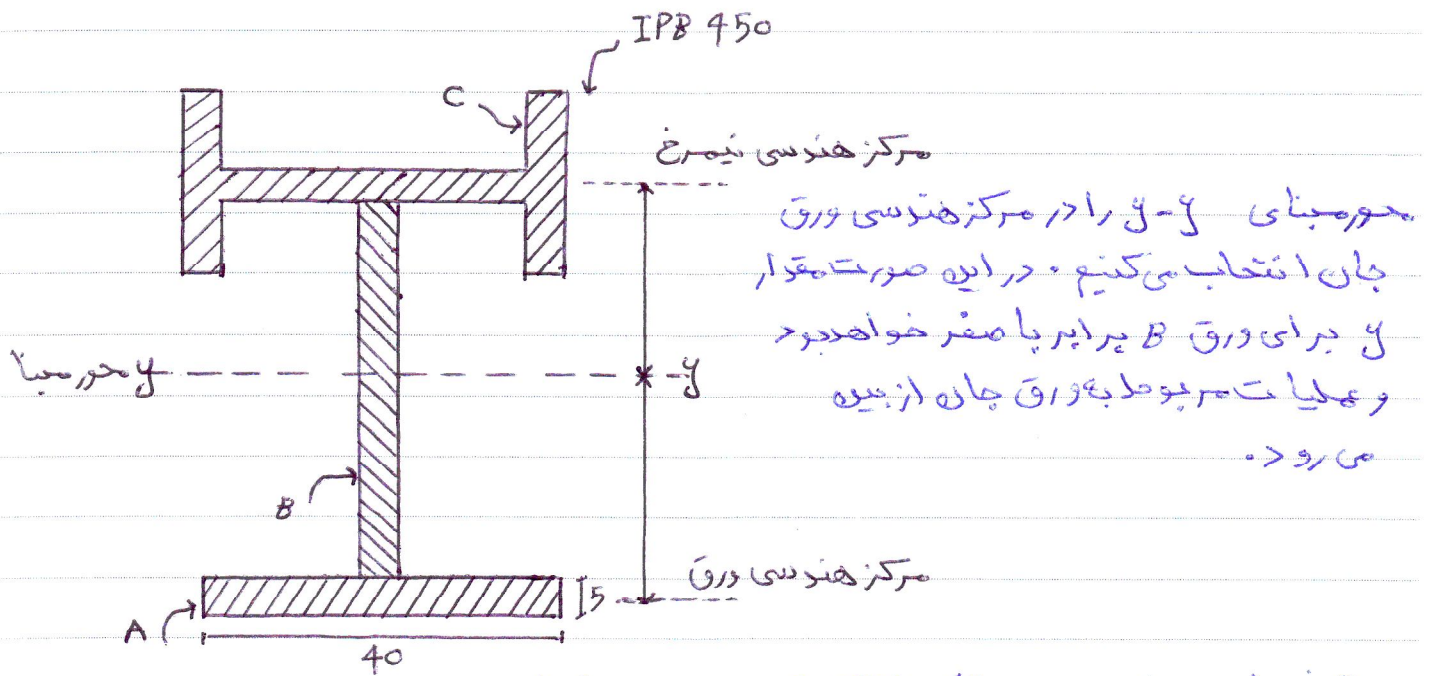 IPB 450
C
مرکز هندسی نیمرخ
محور مبنای y-y را در مرکز هندسی ورق
جان انتخاب می کنیم . در این صورت مقدار
y برای ورق B برابر با صفر خواهد بود
و عملیات مربوط به ورق جان از بین
می رود .
محور مبنا y
y
B
مرکز هندسی ورق
5
A
40